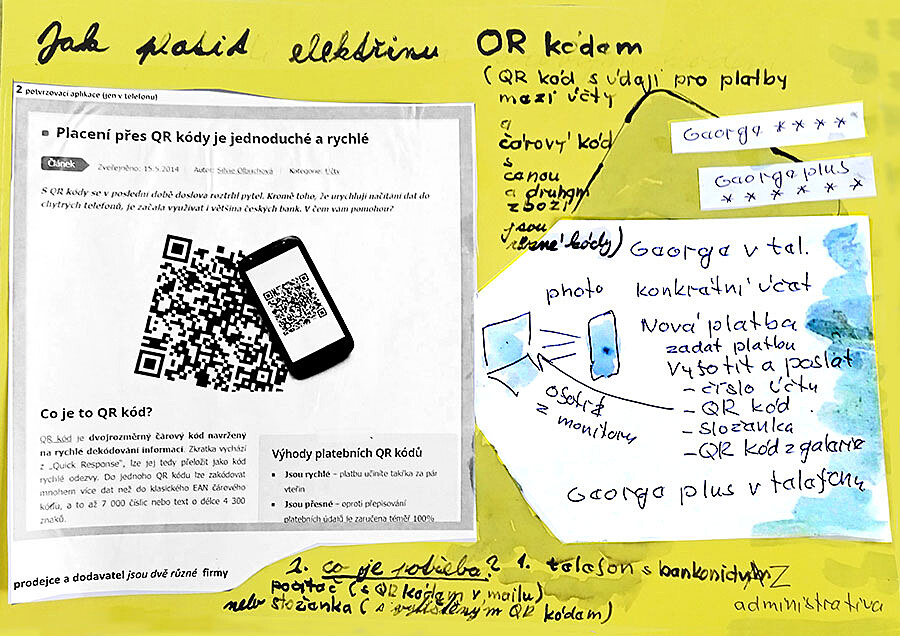 Jak platit elektřinu QR kódam
(QR kód s údaji pro platby
mazi účty
a
čárový kód
s
canou
a druham
zboží
jsou
různé kódy)
2 potvrzovací aplikace (jen v telefonu)
Placení přes QR kódy je jednoduché a rychlé
Článek Zveřejněno: 15.5.2014 Autor: Kategorie: Účty
S QR kódy se v poslední době doslova roztrhl pytel. Kromě toho, že urychlují načítání dat do
chytrých telefonů, je začala využívat i většina českých bank. V čem vám pomohou?
Co je to QR kód?
QR kód je dvojrozměrný čárový kód navržený
na rychlé dekódování informací. Zkratka vychází
z „Quick Response", lze jej tedy přeložit jako kód
rychlé odezvy. Do jednoho QR kódu lze zakódovat
mnohem více dat než do klasického EAN čárového
kódu, a to až 7 000 číslic nebo text o délce 4 300
znaků.
Výhody platebních QR kódů
Jsou rychlé – platbu učiníte takřka za pár
vteřin
Jsou přesné – oproti přepisování
platebních údajů je zaručena téměř 100%
prodejce a dodavatel jsou dvě různé firmy
Gaorga ****
Gaorga plus
******
Gaorga v tal.
photo konkrátní účat
Nová platba
zadat platbu
Vyfotit a poslat
- číslo účtu
- QR kód
- složanka
- QR kód z galaria
z monitoru
Gaorga plus v talafonu
co je potřeba? 1. talafon s bankonidyam
počítač (s QR kódam v mailu)
nebo složanka (s QR kódam)
AZ
administrativa